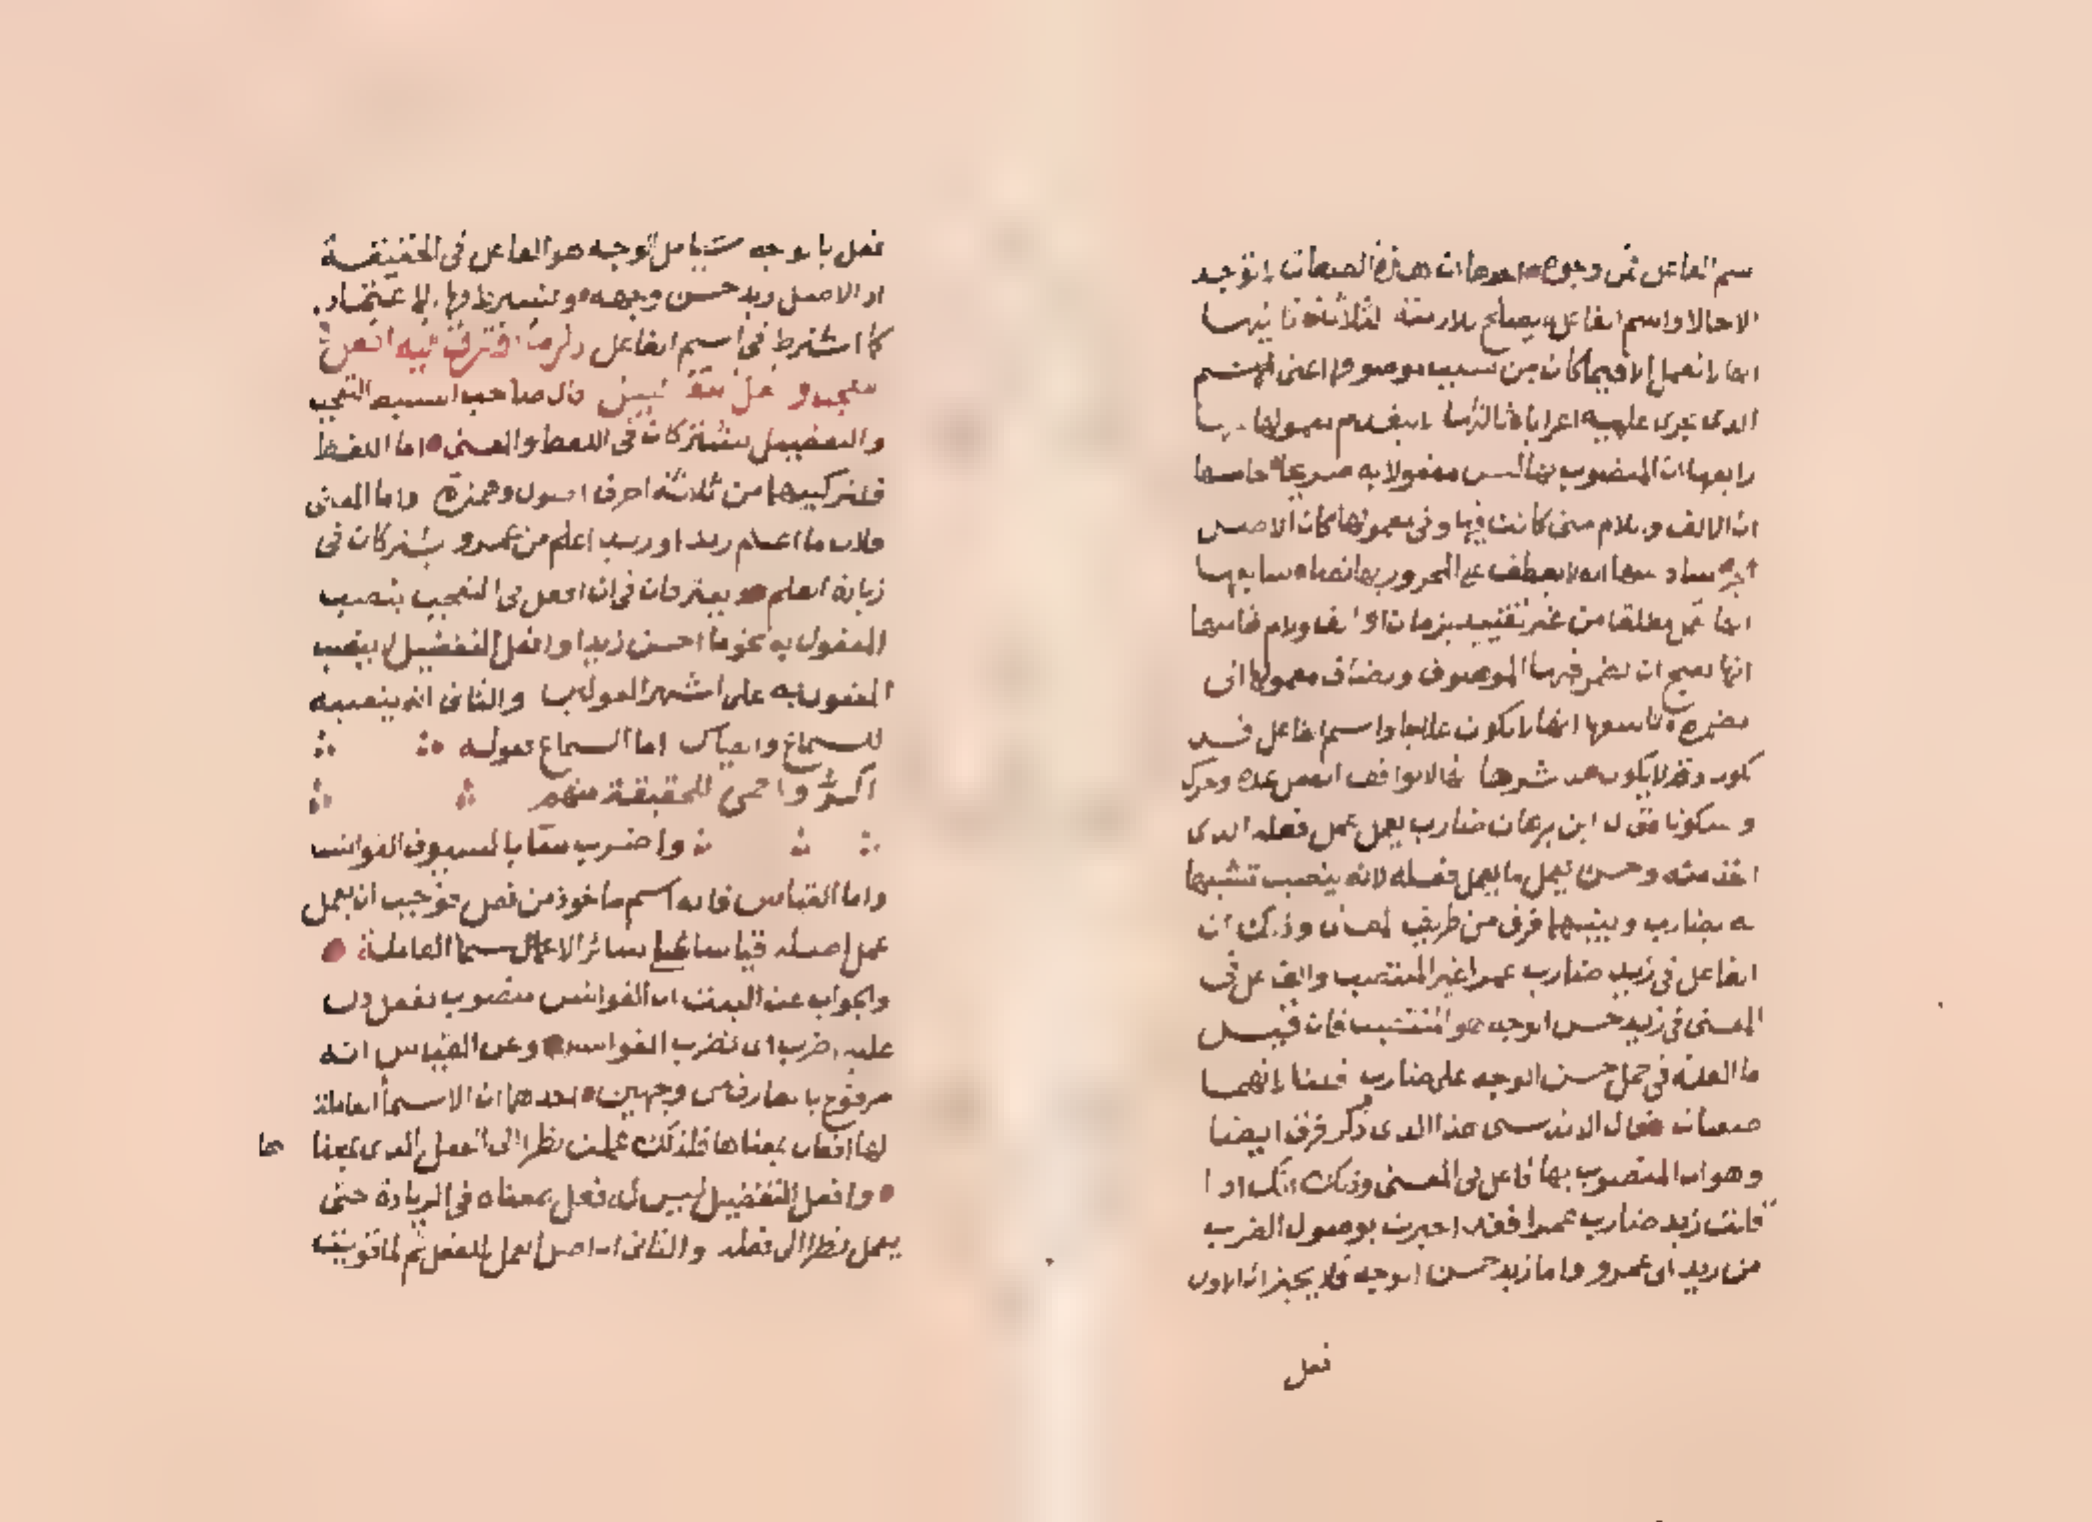 سم الفاعل فمن وجوه احدها ان هذه الصفات لا توجد
الا حالا واسم الفاعل يصلح للازمنة الثلاثة ثانيها
انها لا تعمل الا فيما كان من سبب موصوفها اعنى الاسم
الذى تجرى عليه اعرابا ثالثها لا يتقدم معمولها عليها
رابعها ان المنصوب بها ليس مفعولا به صريحا خامسها
ان الالف واللام متى كانت فيها وفى معمولها كان الاصل
الجر سادسها انه لا يعطف على المجرور بها نصبا سابعها
انها تعمل مطلقا من غير تقييد بزمان او الف ولام ثامنها
انها تصح ان تضمر فيها الموصوف ويضاف معمولها الى
مضمره تاسعها انها لا تكون علاجا واسم الفاعل قد
يكون وقد لا يكون عاشرها انها لا توافق الفعل عدة وحركة
وسكونا قال ابن برهان ضارب يعمل عمل فعله الذى
اخذ منه وحسن يعمل ما لا يعمل فعله لانه ينصب تشبيها
له بضارب وبينهما فرق من طريق المعنى وذلك ان
الفاعل فى زيد ضارب عمرا غير المنتصب والفاعل فى
المعنى فى زيد حسن الوجه هو المنتصب فان قيل
ما العلة فى حمل حسن الوجه على ضارب قلنا لانهما
صفتان قال الاندلسى هذا الذى ذكر فرق ايضا
وهو ان المنصوب بها فاعل فى المعنى وذلك انك اذا
قلت زيد ضارب عمرا فقد اخبرت بوصول الضرب
من زيد الى عمرو واما زيد حسن الوجه فلا يخبر ان الاول
فعل
فعل بالوجه شيا بل الوجه هو الفاعل فى الحقيقة
اذ الاصل زيد حسن وجهه ويشترط فيها الاعتماد
كما اشترط فى اسم الفاعل
قال صاحب البسيط التعجب
والتفضيل يشتركان فى اللفظ والمعنى اما اللفظ
فلتركيبهما من ثلاثة احرف اصول وهمزة واما المعنى
فلان ما اعلم زيدا وزيد اعلم من عمرو يشتركان فى
زيادة العلم ويفترقان فى ان افعل فى التعجب ينصب
المفعول به نحو ما احسن زيدا وافعل التفضيل لا ينصب
المفعول به على اشهر القولين والثانى انه ينصبه
للسماع والقياس اما السماع فقوله
اكر واحمى للحقيقة منهم
واضرب منا بالسيوف القوانسا
واما القياس فانه اسم ماخوذ من فعل فوجب ان يعمل
عمل اصله قياسا على سائر الاسما العاملة
والجواب عن البيت ان القوانس منصوب بفعل دل
عليه اضرب اى نضرب القوانس وعن القياس انه
مدفوع بالفارق من وجهين احدهما ان الاسما العاملة
لها افعال بمعناها فلذلك عملت نظرا الى الفعل الذى بمعنا ها
وافعل التفضيل ليس له فعل بمعناه فى الزيادة حتى
يعمل نظرا الى فعله والثانى ان اصل العمل للفعل ثم لما قويت